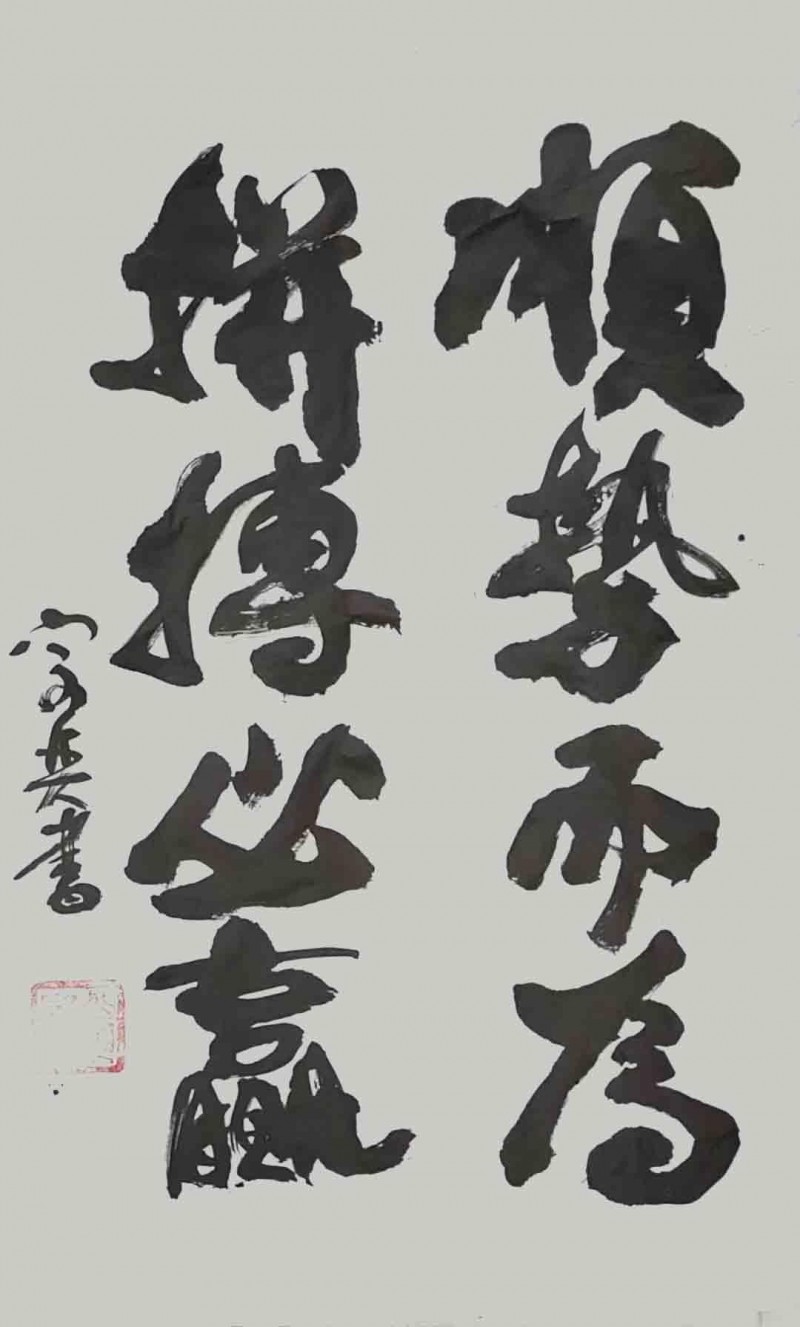 順勢而為
拼搏必赢
兵書